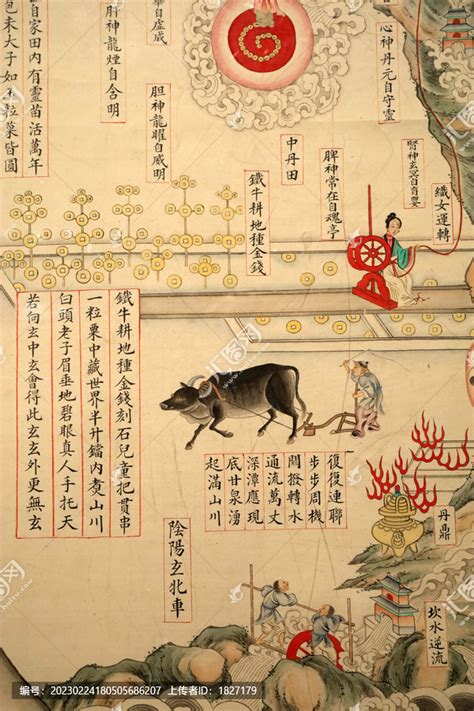 心神丹元自守靈
華自虛成
肝神龍煙自含明
自家田內有靈苗活萬年
包未大子如玉粒菓皆圓
膽神龍曜自威明
腎神玄冥自育嬰
織女運轉
脾神常在自魂亭
中丹田
鐵牛耕地種金錢
鐵牛耕地種金錢刻石兒童把貫串
一粒粟中藏世界半升鐺內煑山川
白頭老子眉垂地碧眼真人手托天
若向玄中玄會得此玄玄外更無玄
復復連聯
步步周機
關撥轉水
通流萬丈
深潭應現
底甘泉湧
起滿山川
丹鼎
陰陽玄牝車
坎水逆流
编号：20230224180505686207 上传者ID：1827179